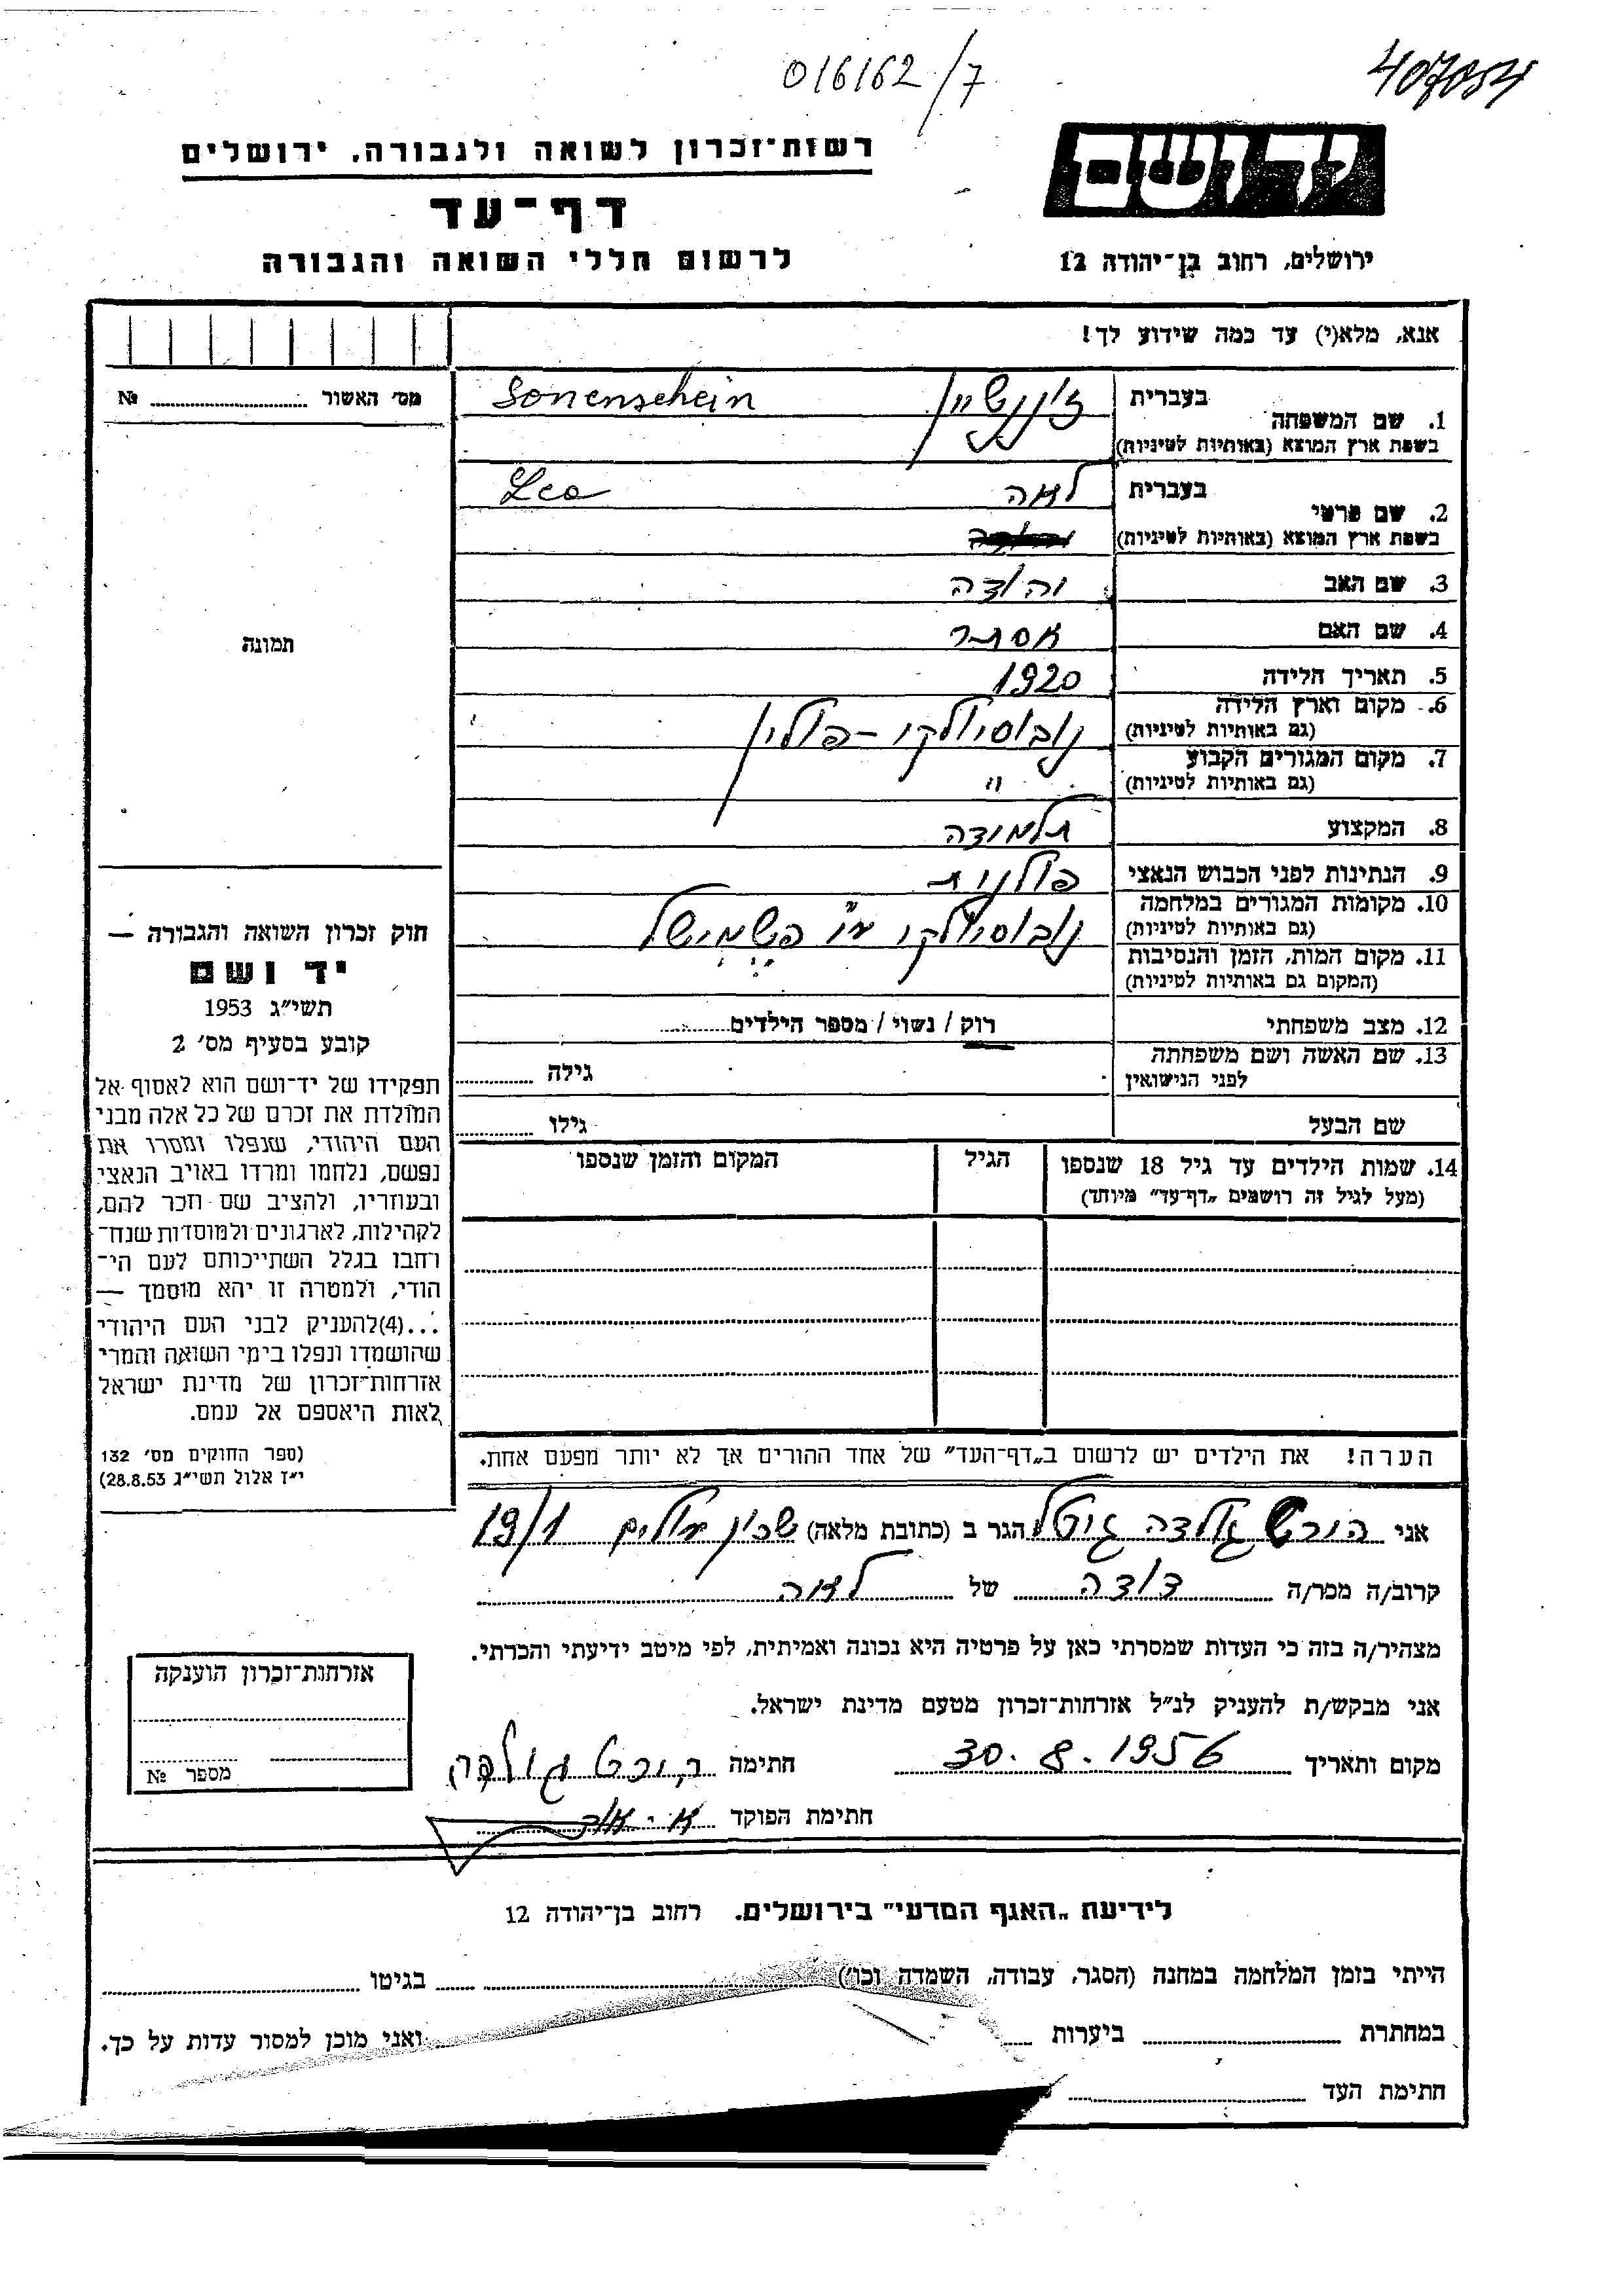 016162/7
407054
יד ושם
רשות־זכרון לשואה ולגבורה, ירושלים
דף־עד
לרשום חללי השואה והגבורה
ירושלים, רחוב בן־יהודה 12
אנא, מלא(י) עד כמה שידוע לך!
מס׳ האשור № ........
1. שם המשפחה בעברית Sonenschein
בשפת ארץ המוצא (באותיות לטיניות)
2. שם פרטי בעברית לאה Lea
בשפת ארץ המוצא (באותיות לטיניות)
3. שם האב יהודה
4. שם האם אסתר
5. תאריך הלידה 1920
6. מקום וארץ הלידה נובוסיולקי - פולין
(גם באותיות לטיניות)
7. מקום המגורים הקבוע "
(גם באותיות לטיניות)
8. המקצוע תלמידה
9. הנתינות לפני הכבוש הנאצי פולנית
10. מקומות המגורים במלחמה נובוסיולקי ע"י פשמישל
(גם באותיות לטיניות)
11. מקום המות, הזמן והנסיבות
(המקום גם באותיות לטיניות)
12. מצב משפחתי רוק / נשוי / מספר הילדים........
13. שם האשה ושם משפחתה לפני הנישואין גילה ........
שם הבעל גילו ........
14. שמות הילדים עד גיל 18 שנספו הגיל המקום והזמן שנספו
(מעל לגיל זה רושמים „דף־עד” מיוחד)
הערה! את הילדים יש לרשום ב„דף־העד” של אחד ההורים אך לא יותר מפעם אחת.
תמונה
חוק זכרון השואה והגבורה —
יד ושם
תשי״ג 1953
קובע בסעיף מס׳ 2
תפקידו של יד־ושם הוא לאסוף אל
המולדת את זכרם של כל אלה מבני
העם היהודי, שנפלו ומסרו את
נפשם, נלחמו ומרדו באויב הנאצי
ובעוזריו, ולהציב שם וזכר להם,
לקהילות, לארגונים ולמוסדות שנח־
רבו בגלל השתייכותם לעם הי־
הודי, ולמטרה זו יהא מוסמך —
...(4)להעניק לבני העם היהודי
שהושמדו ונפלו בימי השואה והמרי
אזרחות־זכרון של מדינת ישראל
לאות היאספם אל עמם.
(ספר החוקים מס׳ 132
י״ז אלול תשי״ג 28.8.53)
אני הגר ב (כתובת מלאה) שכון עולים 19/1
קרוב/ה מכר/ה דודה של לאה
מצהיר/ה בזה כי העדות שמסרתי כאן על פרטיה היא נכונה ואמיתית, לפי מיטב ידיעתי והכרתי.
אני מבקש/ת להעניק לנ״ל אזרחות־זכרון מטעם מדינת ישראל.
מקום ותאריך 30.8.1956 חתימה
חתימת הפוקד
אזרחות־זכרון הוענקה
מספר №
לידיעת „האגף המדעי” בירושלים. רחוב בן־יהודה 12
הייתי בזמן המלחמה במחנה (הסגר, עבודה, השמדה וכו׳) ........ בגיטו ........
במחתרת ........ ביערות ........ ואני מוכן למסור עדות על כך.
חתימת העד ........